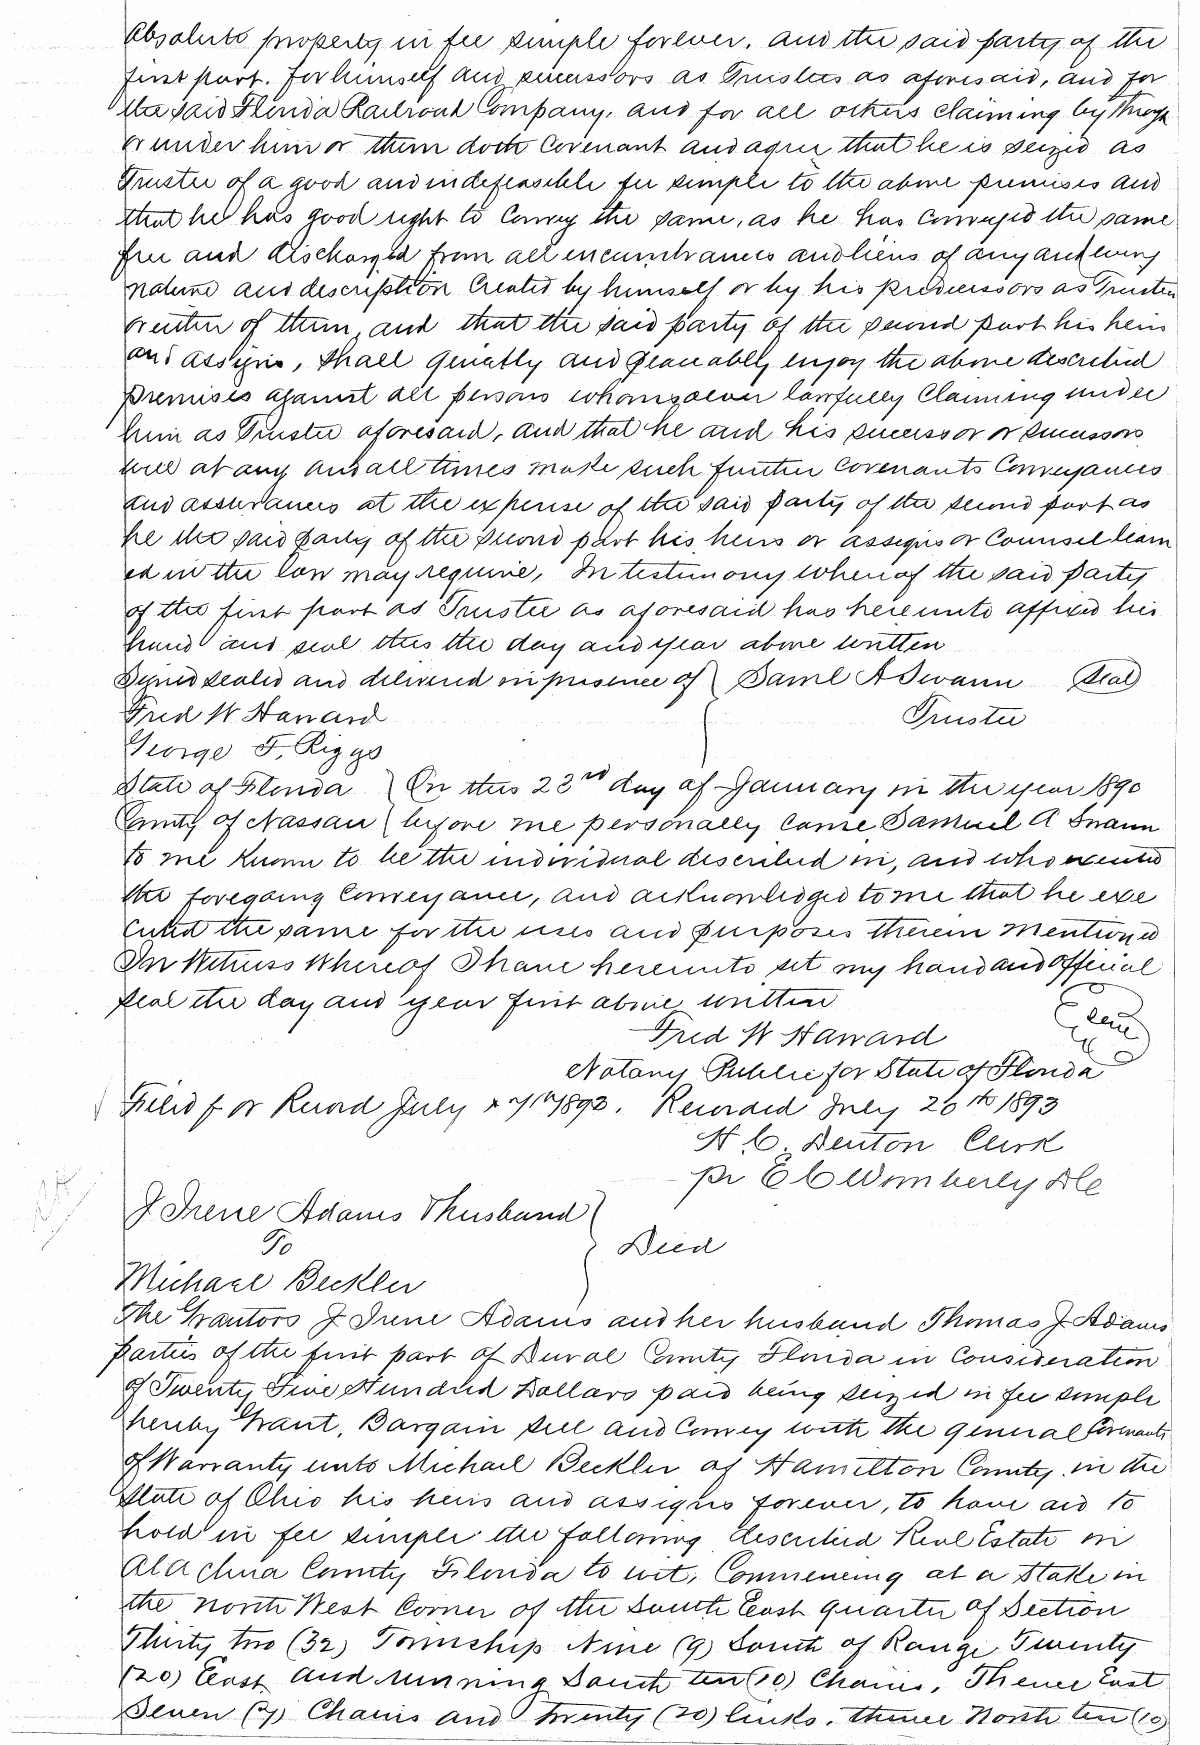 Absolute property in fee simple forever. and the said party of the
first part. for himself and successors as Trustees as aforesaid, and for
the said Florida Railroad Company, and for all others claiming by through
or under him or them doth covenant and agree that he is seized as
Trustee of a good and indefeasible fee simple to the above premises and
that he has good right to convey the same, as he has conveyed the same
free and discharged from all encumbrances and liens of any and every
nature and description Created by himself or by his predecessors as Trustee
or either of them, and that the said party of the second part his heirs
and assigns, shall quietly and peaceably enjoy the above described
premises against all persons whomsoever lawfully Claiming under
him as Trustee aforesaid, and that he and his successor or successors
will at any and all times make such further covenants Conveyances
and assurances at the expense of the said party of the second part as
he the said party of the second part his heirs or assigns or Counsel learn
ed in the law may require, In testimony whereof the said party
of the first part as Trustee as aforesaid has hereunto affixed his
hand and seal this the day and year above written
Signed sealed and delivered in presence of Saml A Swann Seal
Fred W Hanard Trustee
George F. Riggs
State of Florida On this 23rd day of January in the year 1890
County of Nassau before me personally came Samuel A Swann
to me known to be the individual described in, and who executed
the foregoing Conveyance, and acknowledged to me that he exe
cuted the same for the uses and purposes therein Mentioned
In Witness Whereof I have hereunto set my hand and official
seal the day and year first above written
Seal
Fred W Hanard
Notary Public for State of Florida
Filed for Record July 1893. Recorded July 26th 1893
H. C. Denton Clerk
pr E C Womberly DC
J Irene Adams & husband
To Deed
Michael Beckler
The Grantors J Irene Adams and her husband Thomas J Adams
parties of the first part of Duval County Florida in Consideration
of Twenty Five Hundred Dollars paid being seized in fee simple
hereby Grant, Bargain sell and Convey with the general Covenants
of Warranty unto Michael Beckler of Hamilton County in the
State of Ohio his heirs and assigns forever, to have aid to
hold in fee simple the following described Real Estate in
Alachua County Florida to wit, Commencing at a Stake in
the North West Corner of the South East quarter of Section
Thirty two (32) Township Nine (9) South of Range Twenty
(20) East and running South ten (10) Chains, Thence East
Seven (7) Chains and Twenty (20) links. thence North ten (10)